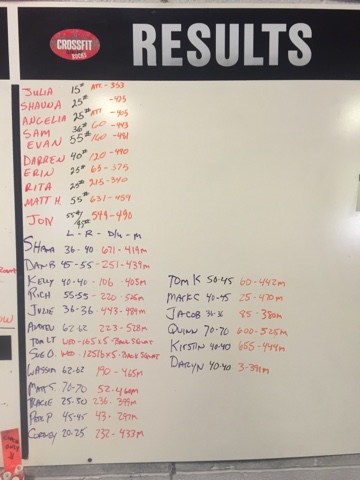 CROSSFIT
ROCKS
RESULTS
JULIA 15# ATT. - 353
SHAUNA 25# - 425
ANGELIA 25# ATT - 405
SAM 36# 60 - 443
EVAN 55# 160 - 481
DARREN 40# 120 - 490
ERIN 25# 63 - 375
RITA 25# 215 - 340
MATT H. 55# 631 - 459
JON 549 - 490
L - R - D/u - M
SHANA 36 - 40 - 671 - 419m
DAN B 45 - 55 - 251 - 439m
KELLY 40-40 - 106 - 405m
RICH 55-55 - 220 - 505m
JULIE 36-36 - 443 - 484m
62-62 - 223 - 528m
TOM LT
SUE O.
62-62 190 - 465m
MATT S 70-70 52-460m
25-30 236-399m
PETE P 45-45 43-297m
20-25 232-433m
TOM K 50-45 60-442m
MARK C 40-45 25-470m
JACOB 36-36 85-380m
QUINN 70-70 600-525m
KIRSTIN 40-40 655-444m
DARYN 40-40 3-391m